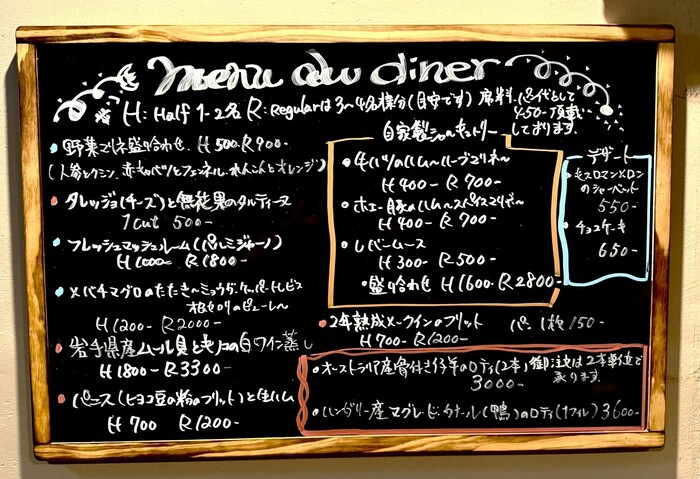 menu du diner
H: Half 1-2名 R: Regularは3〜4名様分(目安です) 席料、パン代として
450-頂戴い
しております。
野菜マリネ盛り合わせ H 500- R 900-
(人参とクミン、赤キャベツとフェンネル、れんこんとオレンジ)
タレッジョ(チーズ)と無花果のタルティーヌ
1cut 500-
フレッシュマッシュルーム(パルミジャーノ)
H 1000- R 1800-
メバチマグロのたたき
のピューレ〜
H 1200- R 2000-
岩手県産ムール貝と の白ワイン蒸し
H 1800- R 3300-
パニース(ヒヨコ豆の粉のフリット)と生ハム
H 700 R 1200-
自家製シャルキュトリー
牛 のハム〜ハーブマリネ〜
H 400- R 700-
ホエー豚のハム〜スパイスマリネ〜
H 400- R 700-
レバームース
H 300- R 500-
盛り合わせ H 1600- R 2800-
デザート
モスロマンメロン
のシャーベット
550-
チョコケーキ
650-
2年熟成メークインのフリット パン 1枚 150-
H 700- R 1200-
オーストラリア産骨付き仔羊のロティ(2本) 御注文は2本単位で
3000- 承ります。
ハンガリー産マグレ・ド・カナール(鴨)のロティ(1フィレ) 3600-